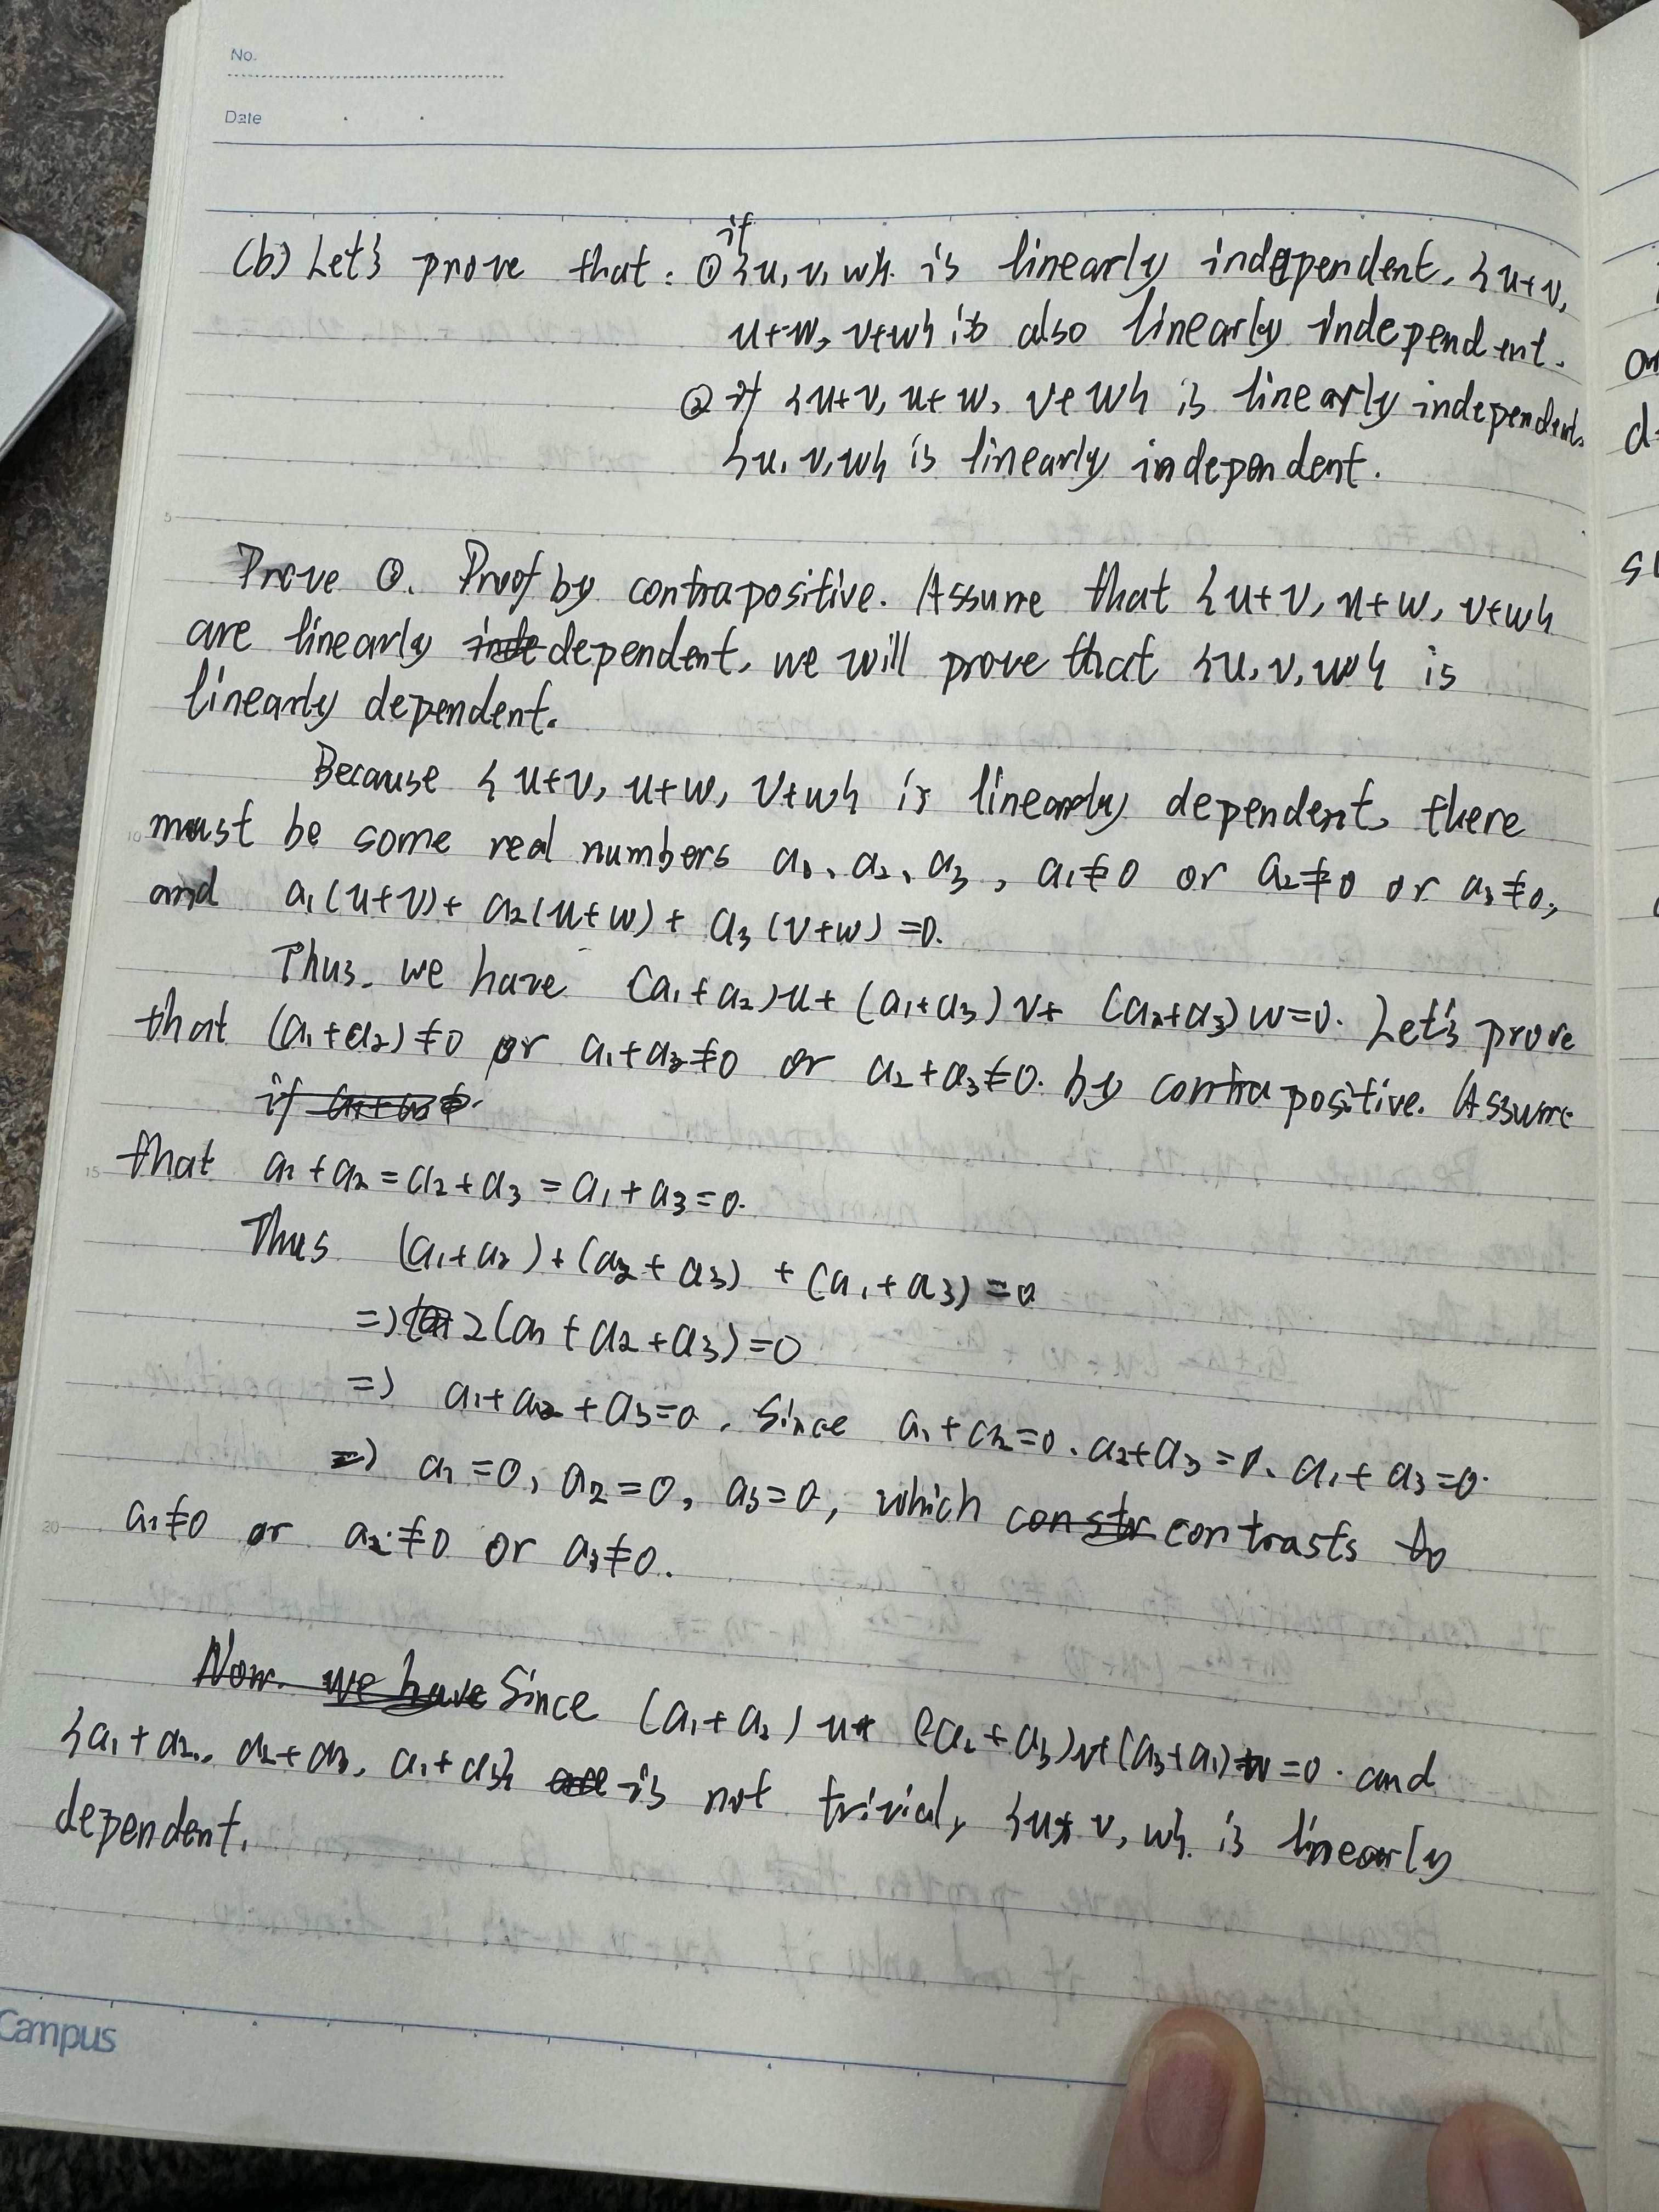 No.
Date
if
(b) Let's prove that: ① {u, v, w} is linearly independent, {u+v,
u+w, v+w} is also linearly independent.
② if {u+v, u+w, v+w} is linearly independent,
{u, v, w} is linearly independent.
5
Prove ①. Proof by contrapositive. Assume that {u+v, u+w, v+w}
are linearly dependent, we will prove that {u, v, w} is
linearly dependent.
Because {u+v, u+w, v+w} is linearly dependent, there
10
must be some real numbers a₁, a₂, a₃, a₁≠0 or a₂≠0 or a₃≠0,
and a₁(u+v)+ a₂(u+w)+ a₃(v+w)=0.
Thus, we have (a₁+a₂)u+ (a₁+a₃)v+ (a₂+a₃)w=0. Let's prove
that (a₁+a₂)≠0 or a₁+a₃≠0 or a₂+a₃≠0. by contrapositive. Assume
if
15
that a₁+a₂=a₂+a₃=a₁+a₃=0.
Thus (a₁+a₂)+(a₂+a₃)+(a₁+a₃)=0
=> 2(a₁+a₂+a₃)=0
=> a₁+a₂+a₃=0. Since a₁+a₂=0. a₂+a₃=0. a₁+a₃=0.
=> a₁=0, a₂=0, a₃=0, which contrasts to
20
a₁≠0 or a₂≠0 or a₃≠0.
Since (a₁+a₂)u+ (a₂+a₃)v+(a₃+a₁)w=0. and
{a₁+a₂, a₂+a₃, a₁+a₃} is not trivial, {u, v, w} is linearly
dependent.
Campus